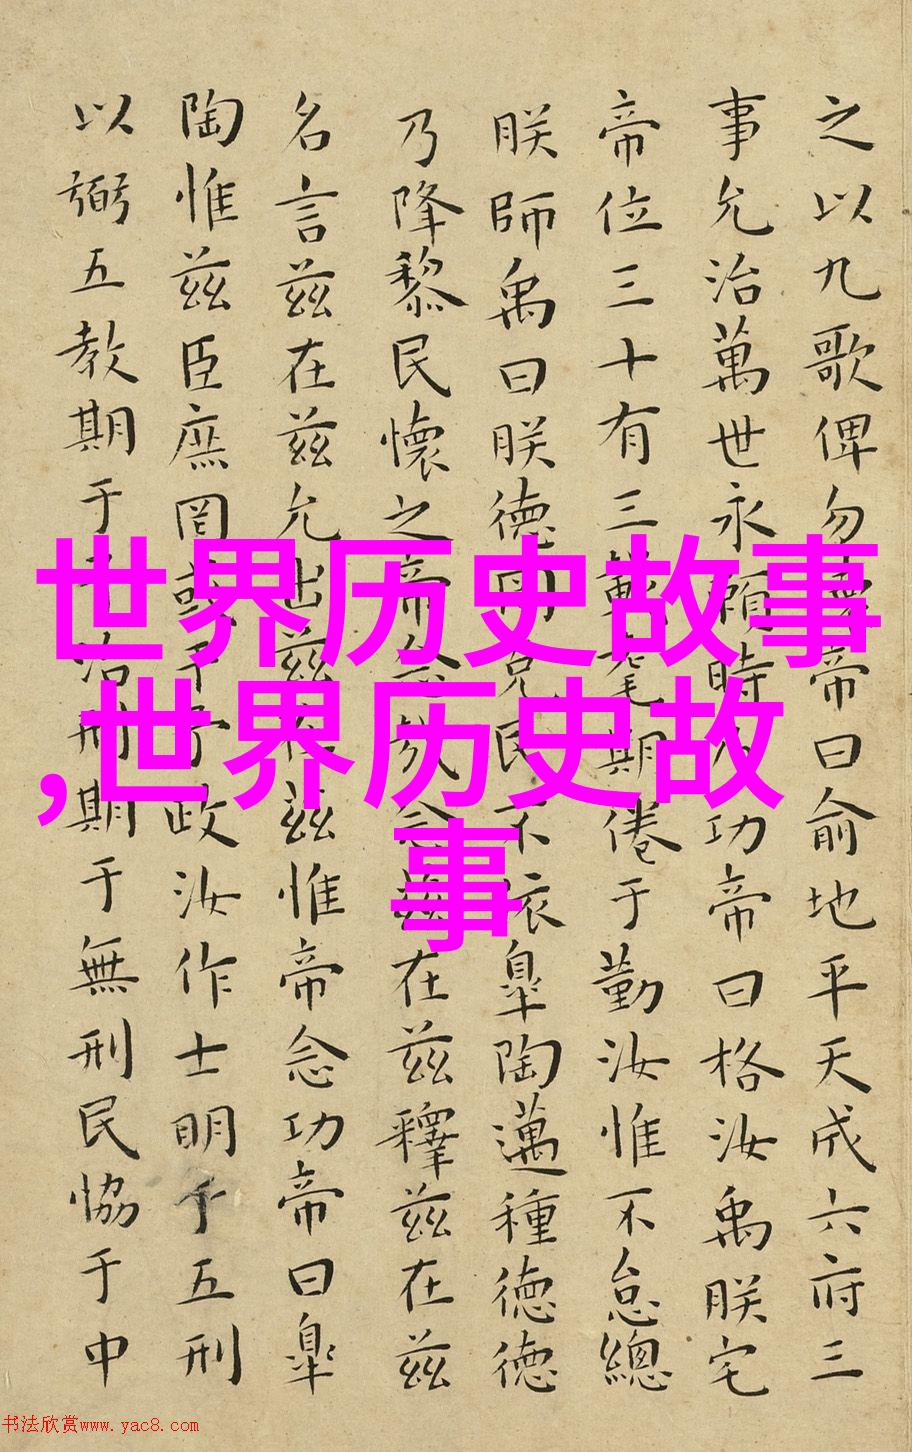 之以九歌俾勿壞帝曰俞地平天成六府三
事允治萬世永賴時乃功帝曰格汝禹朕宅
帝位三十有三載耄期倦于勤汝惟不怠總
朕師禹曰朕德罔克民不依皐陶邁種德德
乃降黎民懷之帝念哉念兹在兹釋兹在兹
名言兹在兹允出兹在兹惟帝念功帝曰皐
陶惟兹臣庶罔或干予政汝作士明于五刑
以弼五教期于予治刑期于無刑民協于中
世界历史故事
,世界历史故
事
书法欣赏www.yac8.com